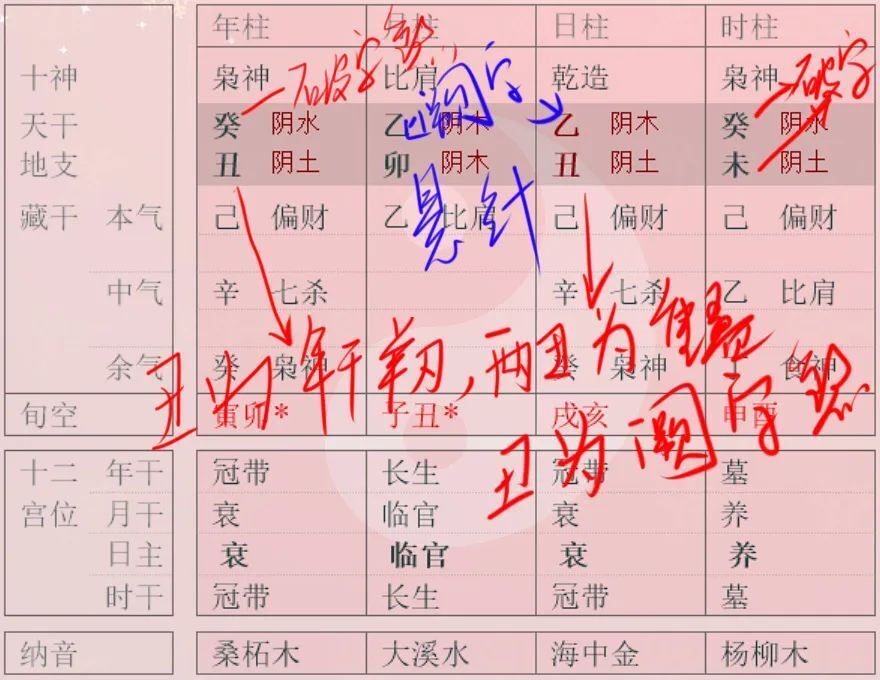 年柱 月柱 日柱 时柱
十神 枭神 比肩 乾造 枭神
天干 癸 阴水 乙 阴木 乙 阴木 癸 阴水
地支 丑 阴土 卯 阴木 丑 阴土 未 阴土
藏干 本气 己 偏财 乙 比肩 己 偏财 己 偏财
中气 辛 七杀 辛 七杀 乙 比肩
余气 癸 枭神 癸 枭神 丁 食神
旬空 寅卯* 子丑* 戌亥 申酉
十二 年干 冠带 长生 冠带 墓
宫位 月干 衰 临官 衰 养
日主 衰 临官 衰 养
时干 冠带 长生 冠带 墓
纳音 桑柘木 大溪水 海中金 杨柳木
破字煞
阙字
破字
悬针
丑为年干羊刃,两丑为
丑为阙字煞